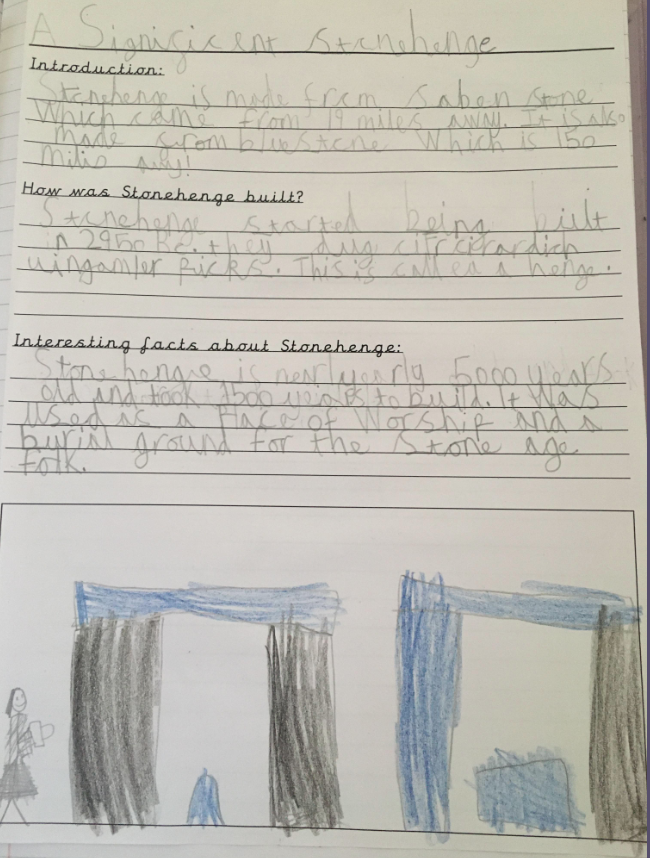 A Significent Stonehenge
Introduction:
Stonehenge is made from saben stone
Which came from 19 miles away. It is also
made from bluestone Which is 150
How was Stonehenge built?
Stonehenge started being built
in 2950 B.C. they dug
This is called a henge.
Interesting facts about Stonehenge:
Stonehenge is 5000 years
old and took 1500 years to build. It was
used as a Place of Worship and a
burial ground for the Stone age
folk.